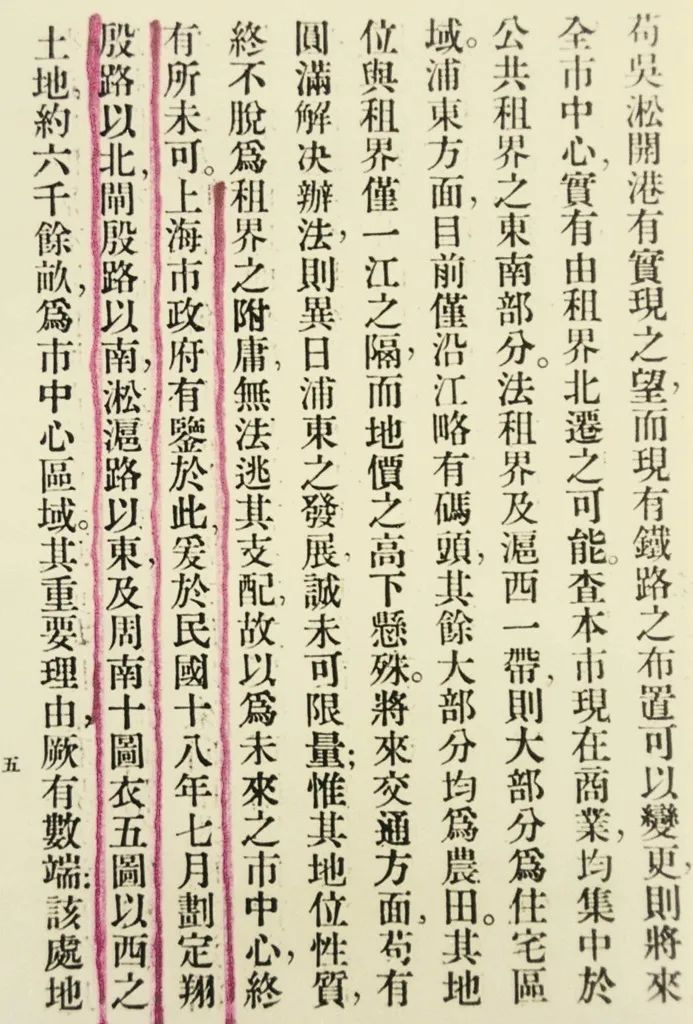 苟吳淞開港有實現之望,而現有鐵路之布置可以變更,則將來
全市中心,實有由租界北遷之可能。查本市現在商業,均集中於
公共租界之東南部分。法租界及滬西一帶,則大部分爲住宅區
域。浦東方面,目前僅沿江略有碼頭,其餘大部分均爲農田。其地
位與租界僅一江之隔,而地價之高下懸殊。將來交通方面,苟有
圓滿解決辦法,則異日浦東之發展,誠未可限量;惟其地位性質,
終不脫爲租界之附庸,無法逃其支配,故以爲未來之市中心,終
有所未可。上海市政府有鑒於此,爰於民國十八年七月劃定翔
殷路以北,閘殷路以南,淞滬路以東,及周南十圖衣五圖以西之
土地,約六千餘畝,爲市中心區域。其重要理由,厥有數端:該處地
五